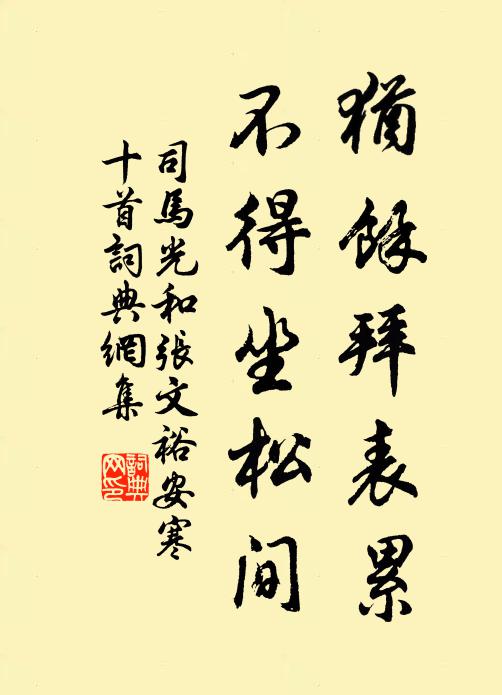 猶餘拜表累
不得坐松间
司馬光和張文裕安寒
十首詞典網集
詞典
网印